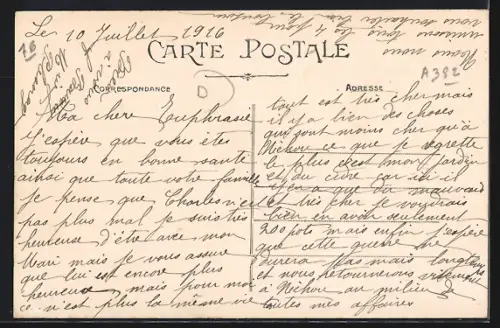 Le 10 Juillet 1916
nous nous
unissons tous les 4 pour
vous souhaiter
CARTE POSTALE
CORRESPONDANCE
ADRESSE
A382
D
Ma chere Euphrasie
J'espère que vous êtes
toujours en bonne santé
ainsi que toute votre famille
je pense que Charles n'est
pas plus mal je suis très
heureuse d'être avec mon
Mari mais je vous assure
que lui est encore plus
heureux mais pour moi
ce n'est plus la même vie
tout est très cher mais
il y a bien des choses
qui sont moins cher qu'à
Néhou ce que je regrette
le plus c'est mon jardin
et du cidre car ici il
n'y en a que du mauvais
et très cher je voudrais
bien en avoir seulement
200 pots mais enfin j'espère
que cette guerre ne
durera pas mais longtemps
et nous retournerons vivement
à Néhou au milieu de
toutes mes affaires